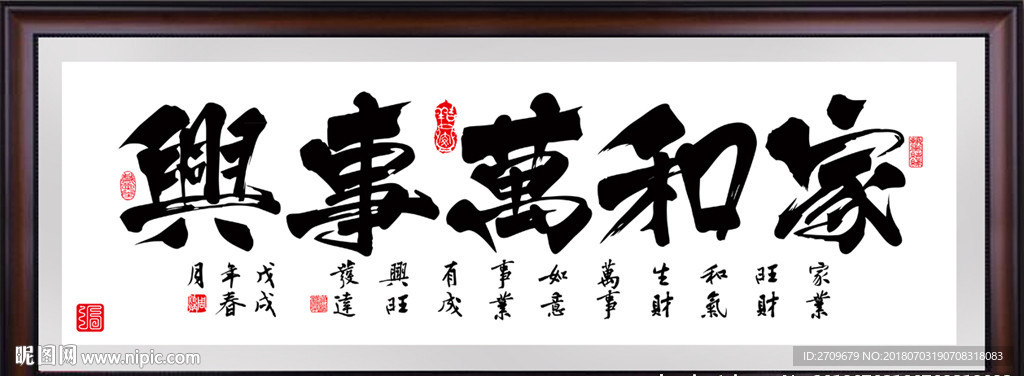 家和萬事興
家業
旺財
和氣
生財
萬事
如意
事業
有成
興旺
發達
戊戌
年春
月
昵图网 www.nipic.com
ID:2709679 NO:20180703190708318083